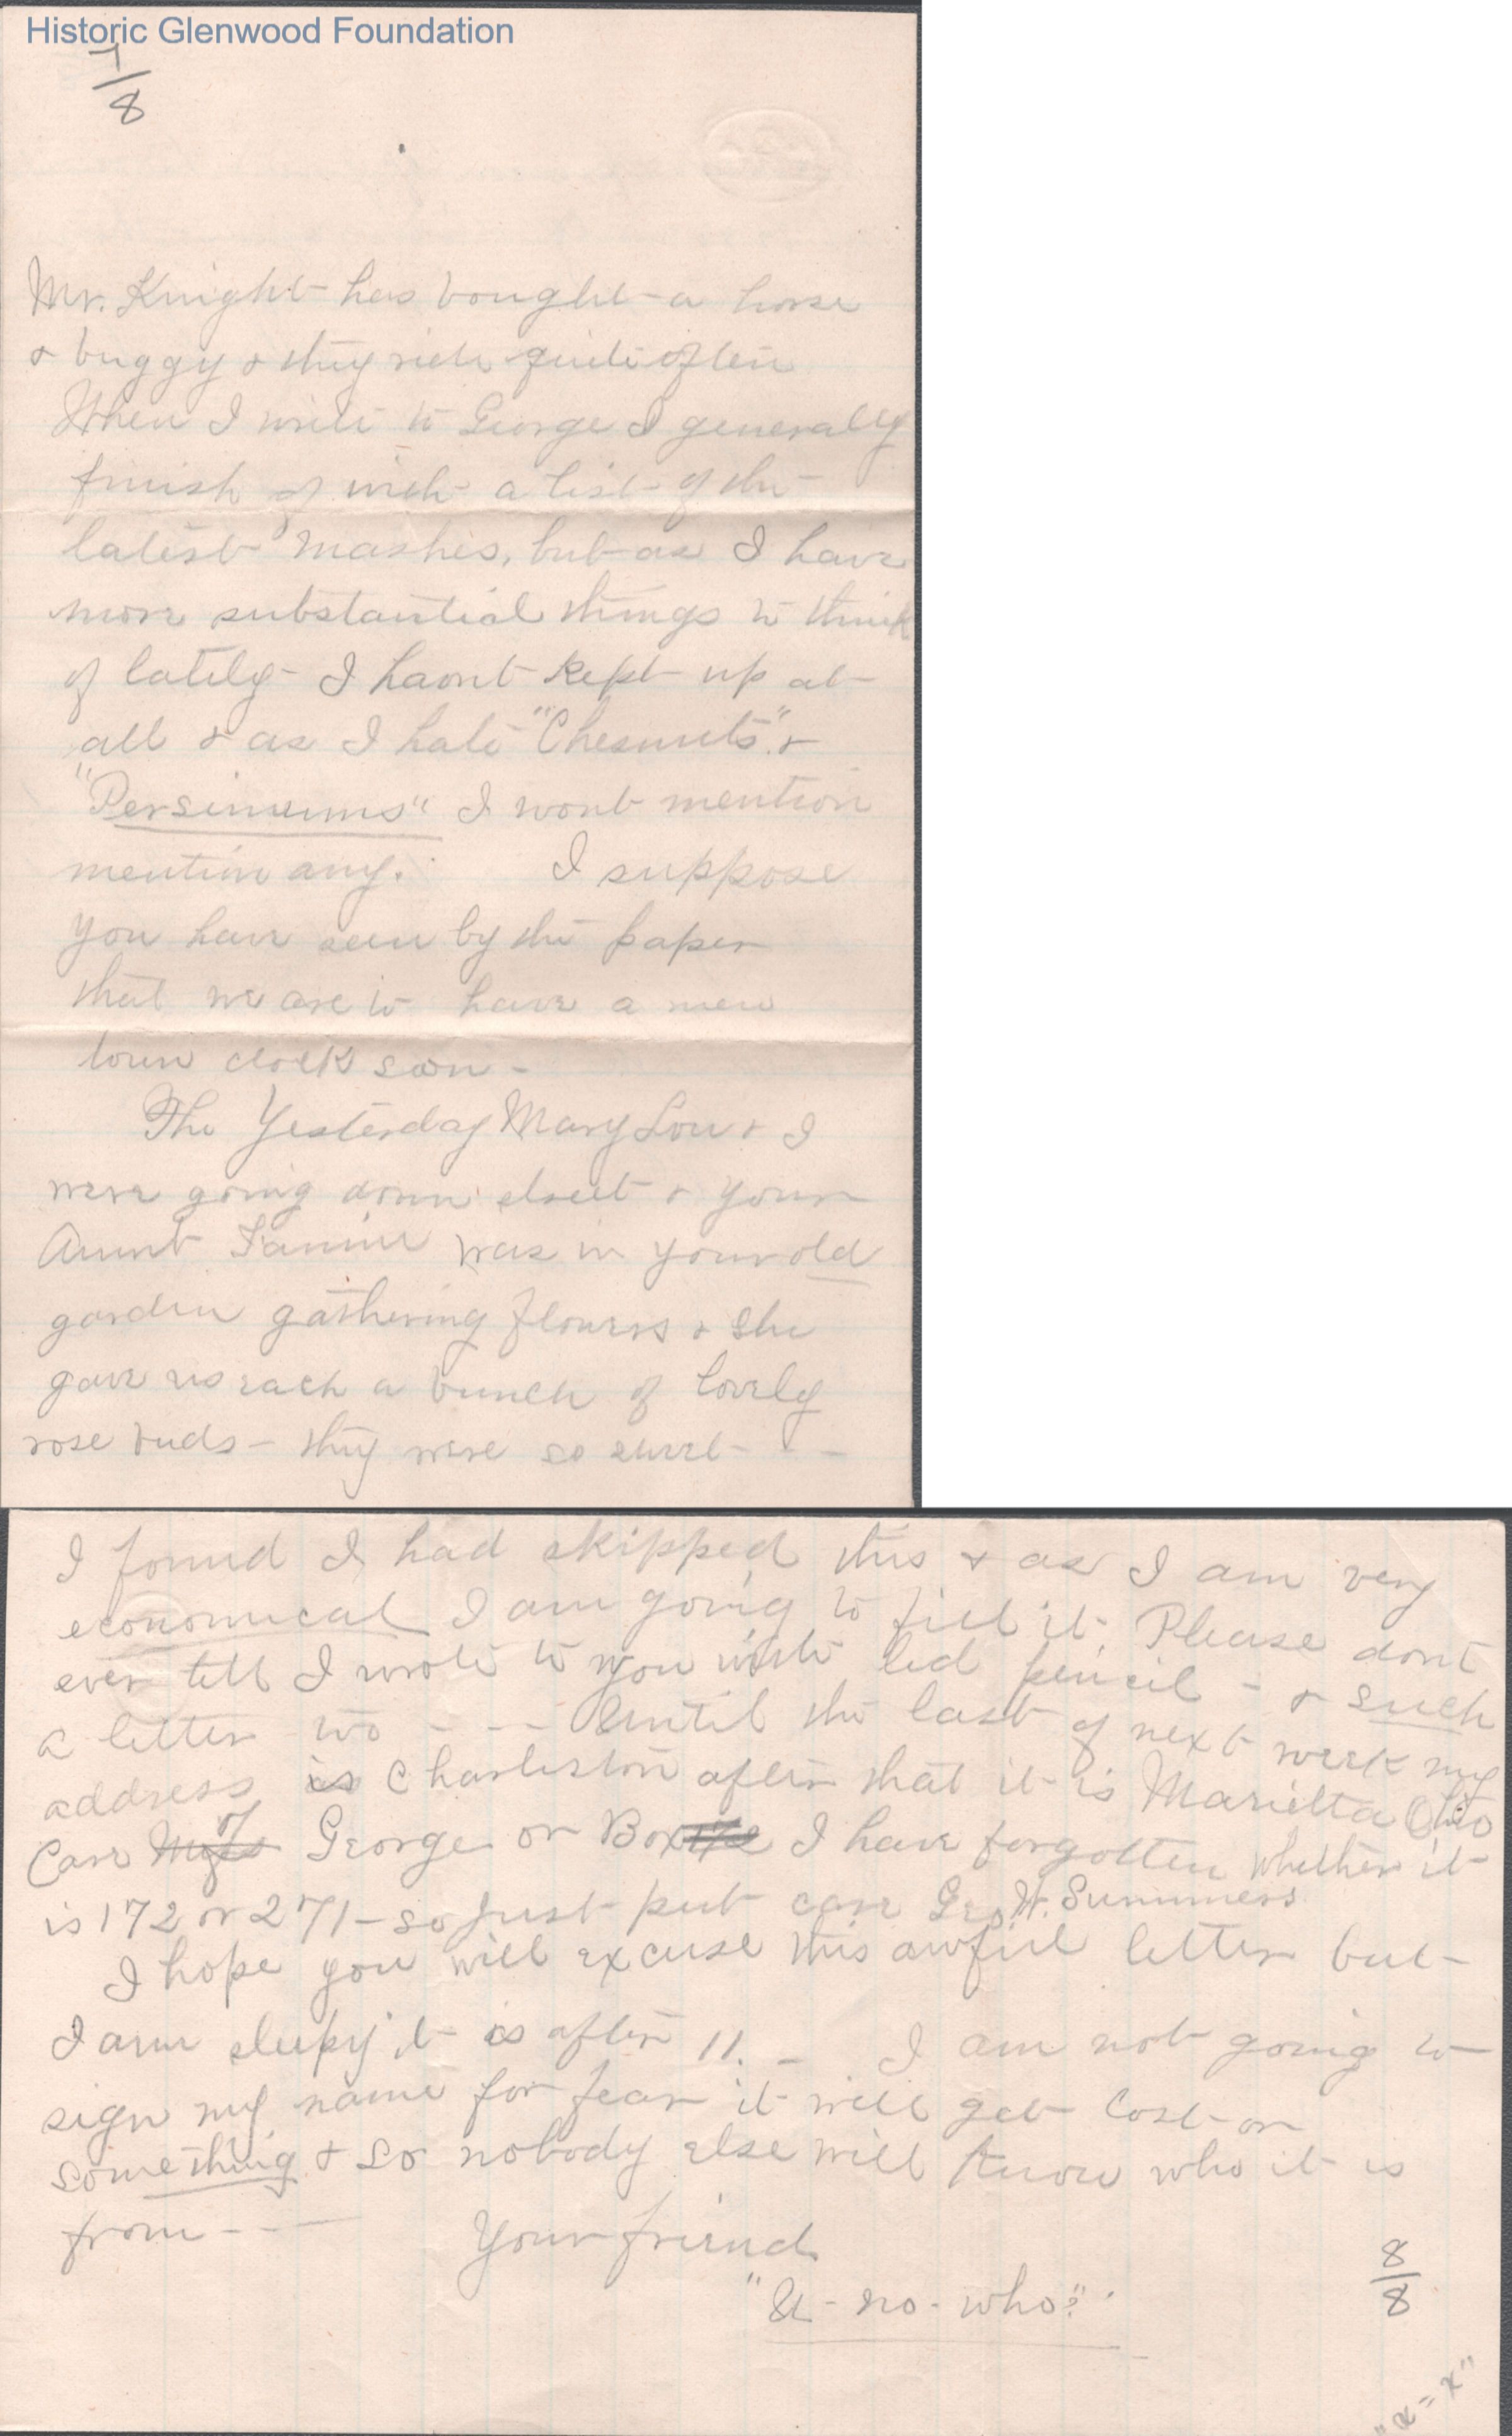 Historic Glenwood Foundation
7/8
Mr. Knight has bought a horse
& buggy & they ride quite often
When I write to George I generally
finish of with a list of the
latest mashes, but as I have
more substantial things to think
of lately - I havnt kept up at
all & as I hate "Chesnuts" &
"Persimmuns" I wont mention
mention any. I suppose
you have seen by the paper
that we are to have a new
town clock soon -
The Yesterday Mary Lou & I
were going down street & your
Aunt Fannie was in your old
garden gathering flowers & she
gave us each a bunch of lovely
rose buds - they were so sweet - - -
I found I had skipped this & as I am very
economical I am going to fill it. Please dont
ever tell I wrote to you with led pencil - & such
a letter two - - - Until the last of next week my
address is Charleston after that it is Marietta Ohio
Care of George or Box I have forgotten whether it
is 172 or 271 - so just put care Geo. W. Summers
I hope you will excuse this awful letter but
I am sleepy it is after 11. - I am not going to
sign my name for fear it will get lost or
something & so nobody else will know who it is
from - - - Your friend
"U - no - who?"
8/8
"x = x"